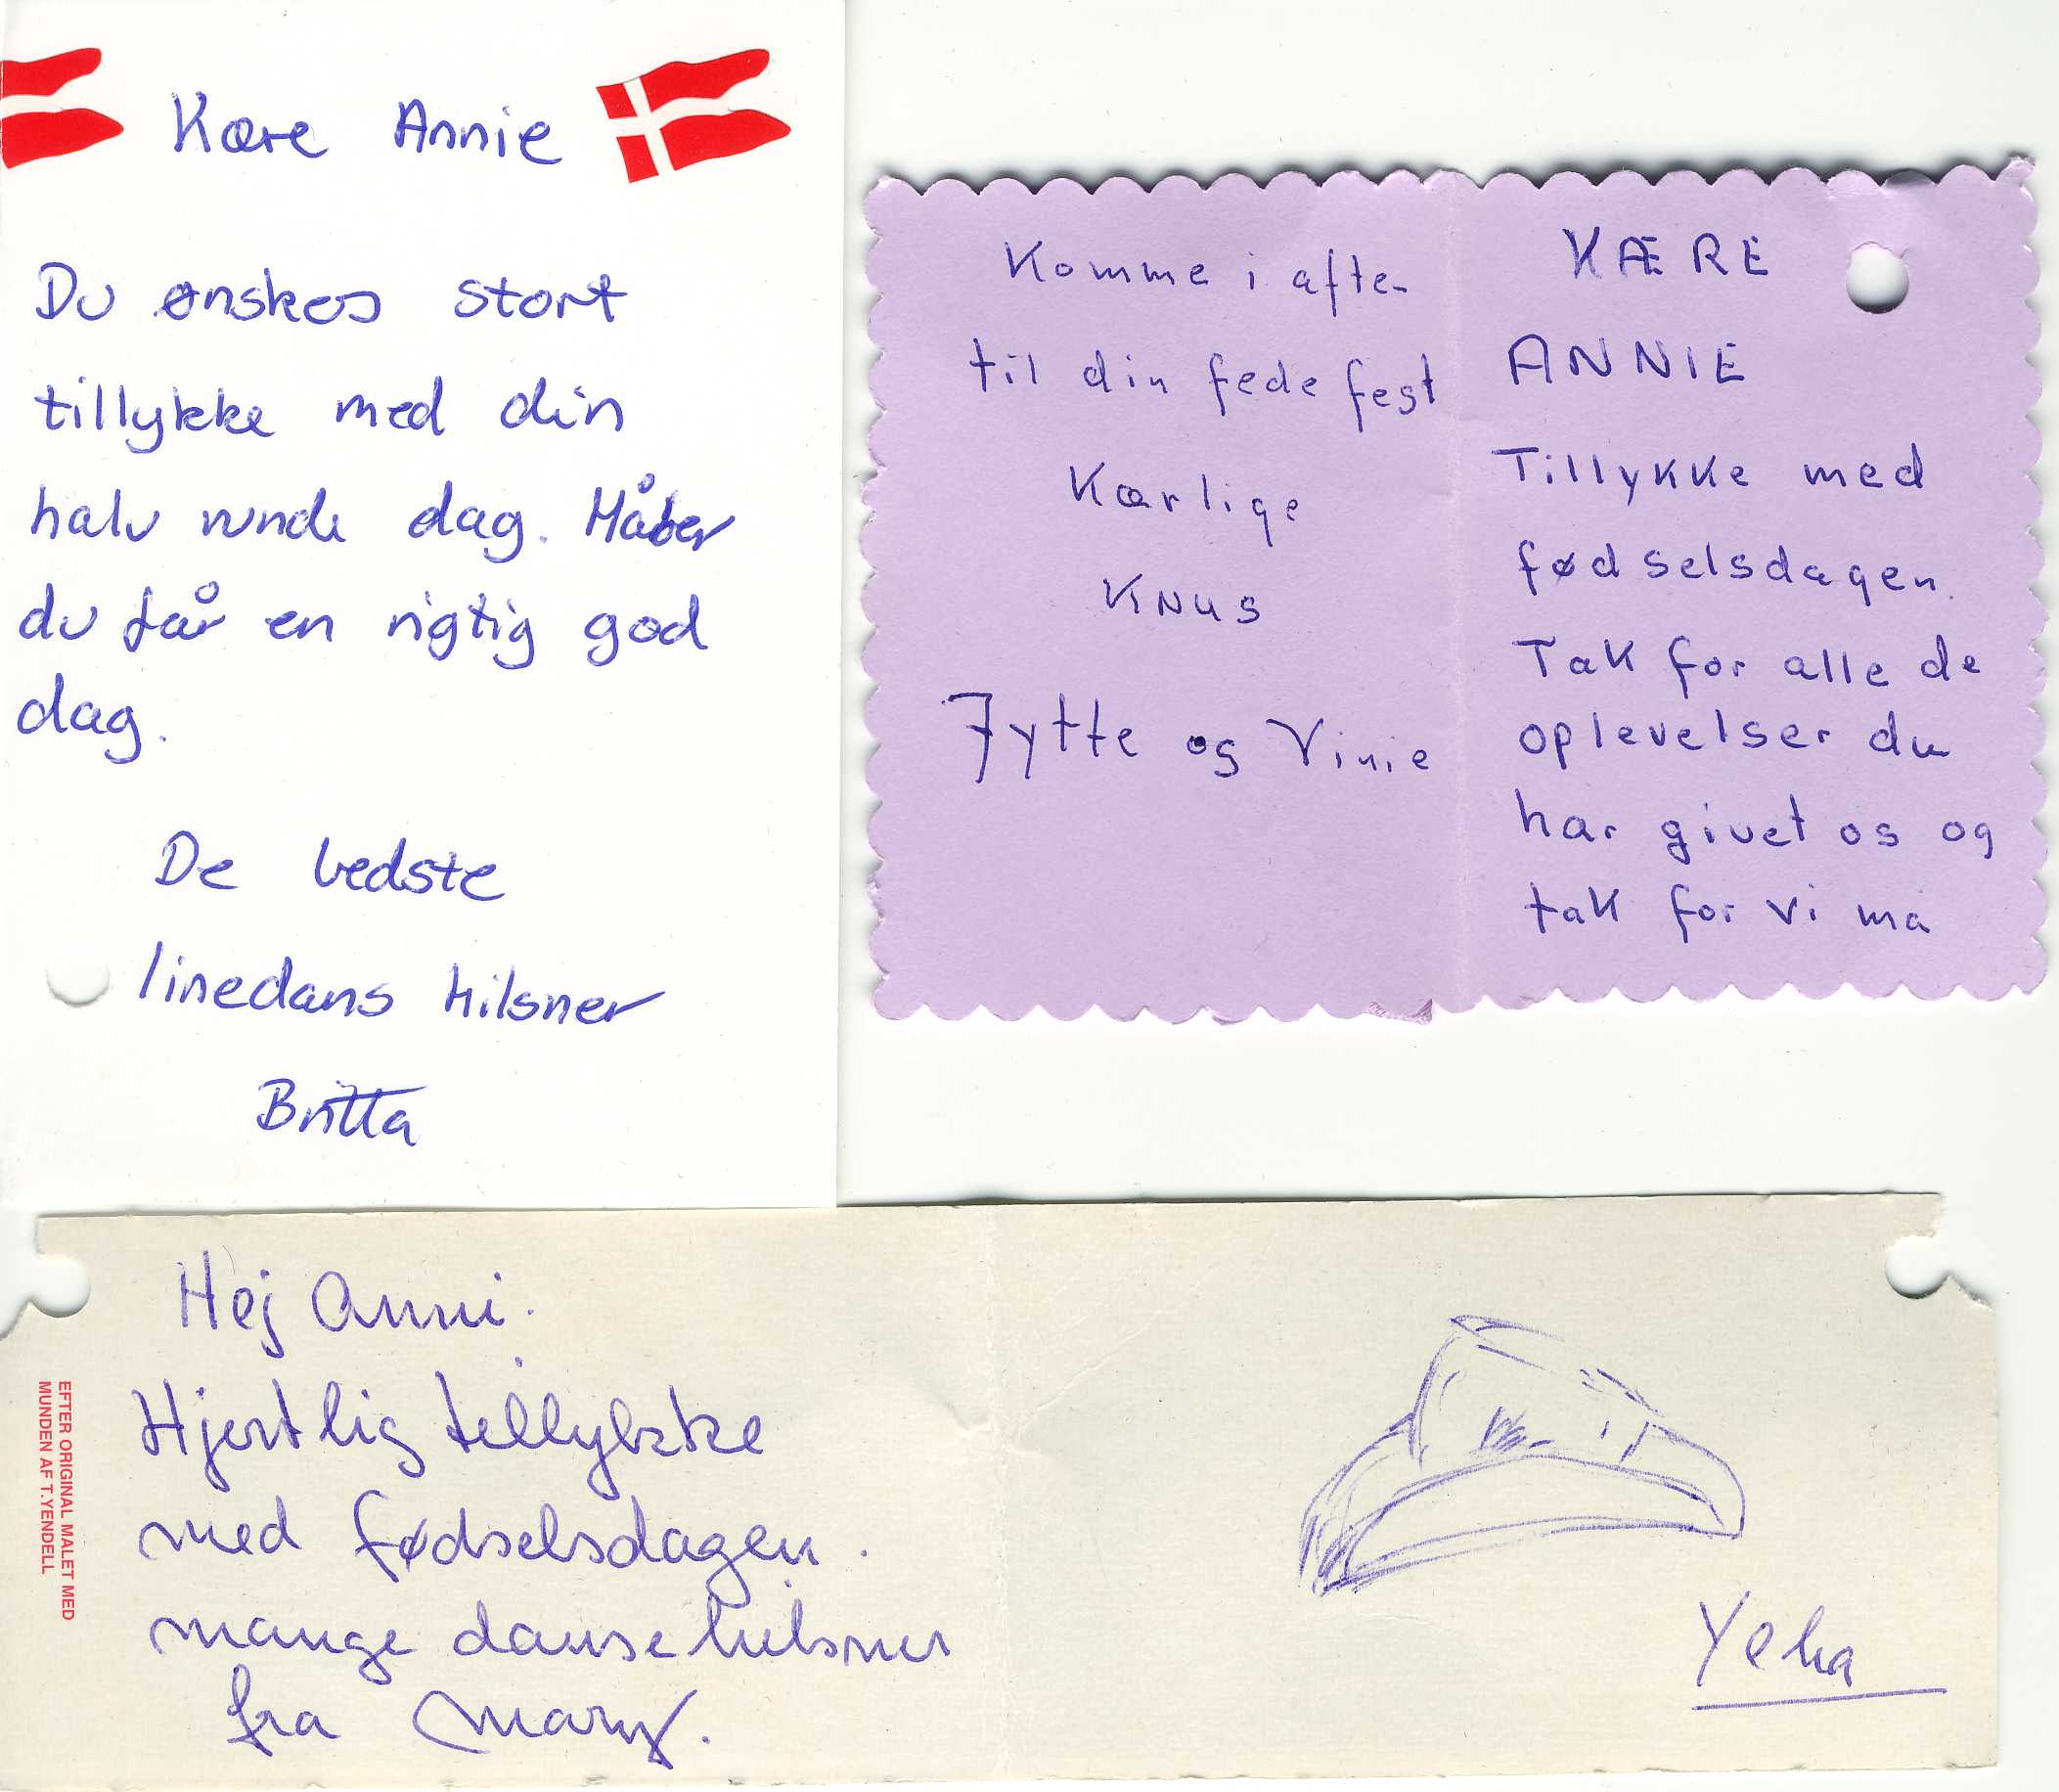 Kære Annie
Du ønskes stort
tillykke med din
halv runde dag. Håber
du får en rigtig god
dag.
De bedste
linedans hilsner
Britta
KÆRE
ANNIE
Tillykke med
fødselsdagen.
Tak for alle de
oplevelser du
har givet os og
tak for vi må
Komme i aften
til din fede fest
Kærlige
KNus
Jytte og Vinie
Hej Anni.
Hjertlig tillykke
med fødselsdagen.
mange danse hilsner
fra Mary.
Yeha
EFTER ORIGINAL MALET MED
MUNDEN AF T.YENDELL